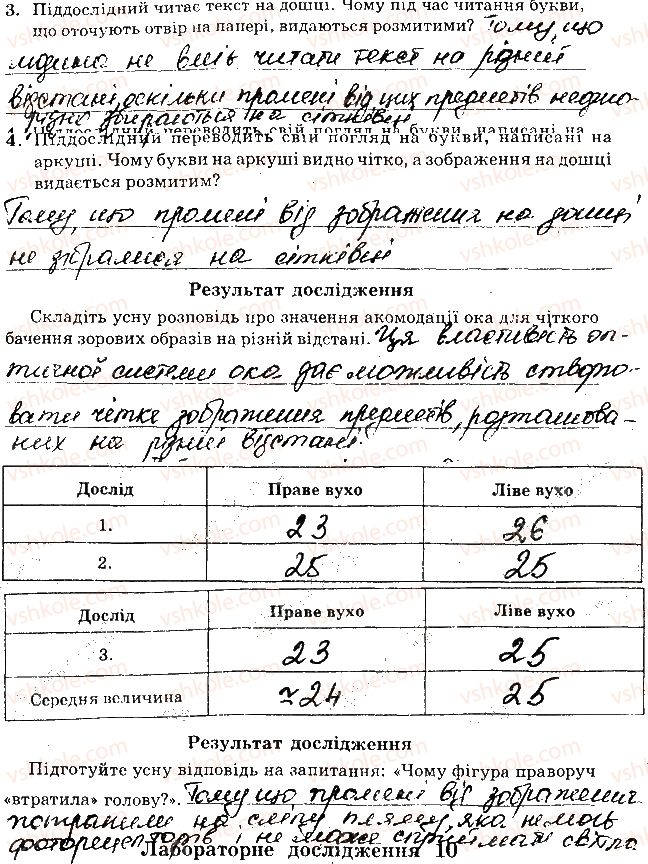 3. Піддослідний читає текст на дошці. Чому під час читання букви,
що оточують отвір на папері, видаються розмитими? Тому, що
людина не вміє читати текст на різній
відстані, оскільки промені від цих предметів неодно-
разно збираються на сітківці
4. Піддослідний переводить свій погляд на букви, написані на
аркуші. Чому букви на аркуші видно чітко, а зображення на дошці
видається розмитим?
Тому, що промені від зображення на дошці
не зібралися на сітківці
Результат дослідження
Складіть усну розповідь про значення акомодації ока для чіткого
бачення зорових образів на різній відстані. Ця властивість оп-
тичної системи ока дає можливість створю-
вати чітке зображення предметів, розташова-
них на різній відстані.
Дослід Праве вухо Ліве вухо
1. 23 26
2. 25 25
Дослід Праве вухо Ліве вухо
3. 23 25
Середня величина ≈24 25
Результат дослідження
Підготуйте усну відповідь на запитання: «Чому фігура праворуч
«втратила» голову?». Тому що промені від зображення
потрапили на сліпу пляму, яка не має
фоторецепторів, не може сприймати світло
Лабораторне дослідження 10